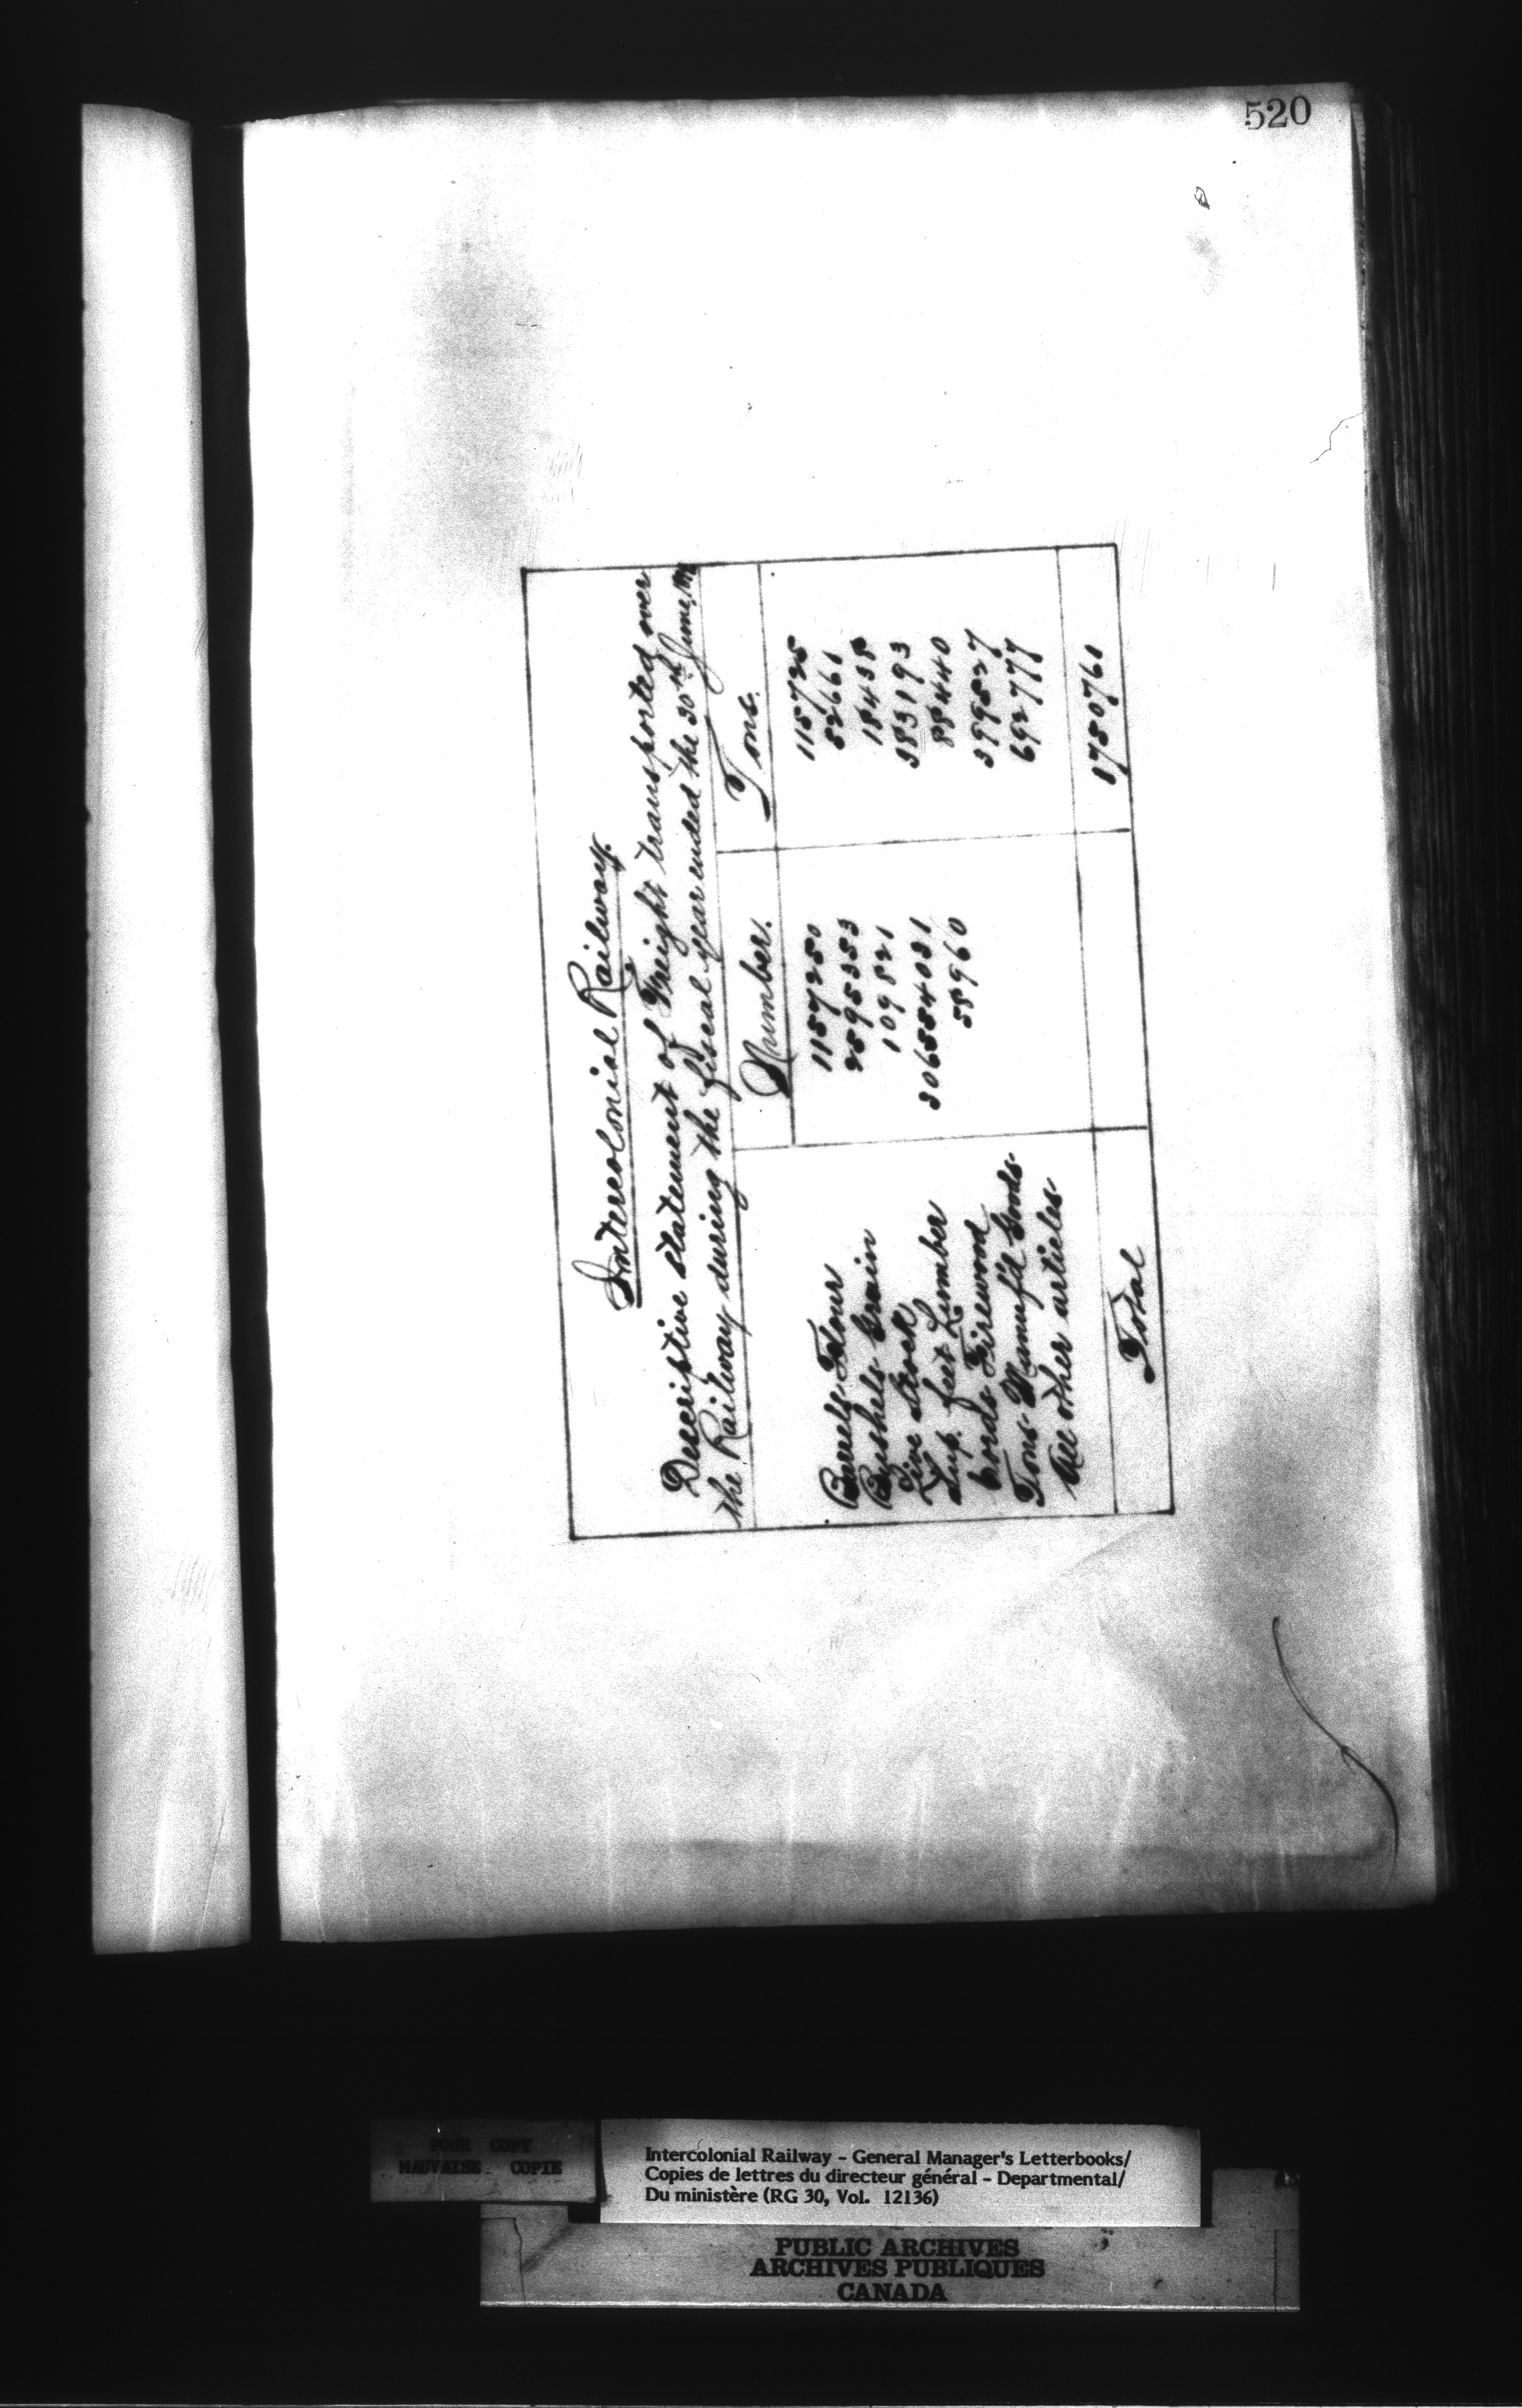 520
Intercolonial Railway.
Descriptive statement of Freight transported over
the Railway during the fiscal year ended the 30th June,
Number. Tons.
Barrels Flour 1157250 115725
Bushels Grain 2595353 52661
Live Stock 109821 18438
Sup. feet Lumber 306554031 383193
Cords Firewood 58960 88440
Tons Manuf'd Goods 399527
All other articles 692777
Total 1750761
POOR COPY
MAUVAISE COPIE
Intercolonial Railway - General Manager's Letterbooks/
Copies de lettres du directeur général - Departmental/
Du ministère (RG 30, Vol. 12136)
PUBLIC ARCHIVES
ARCHIVES PUBLIQUES
CANADA